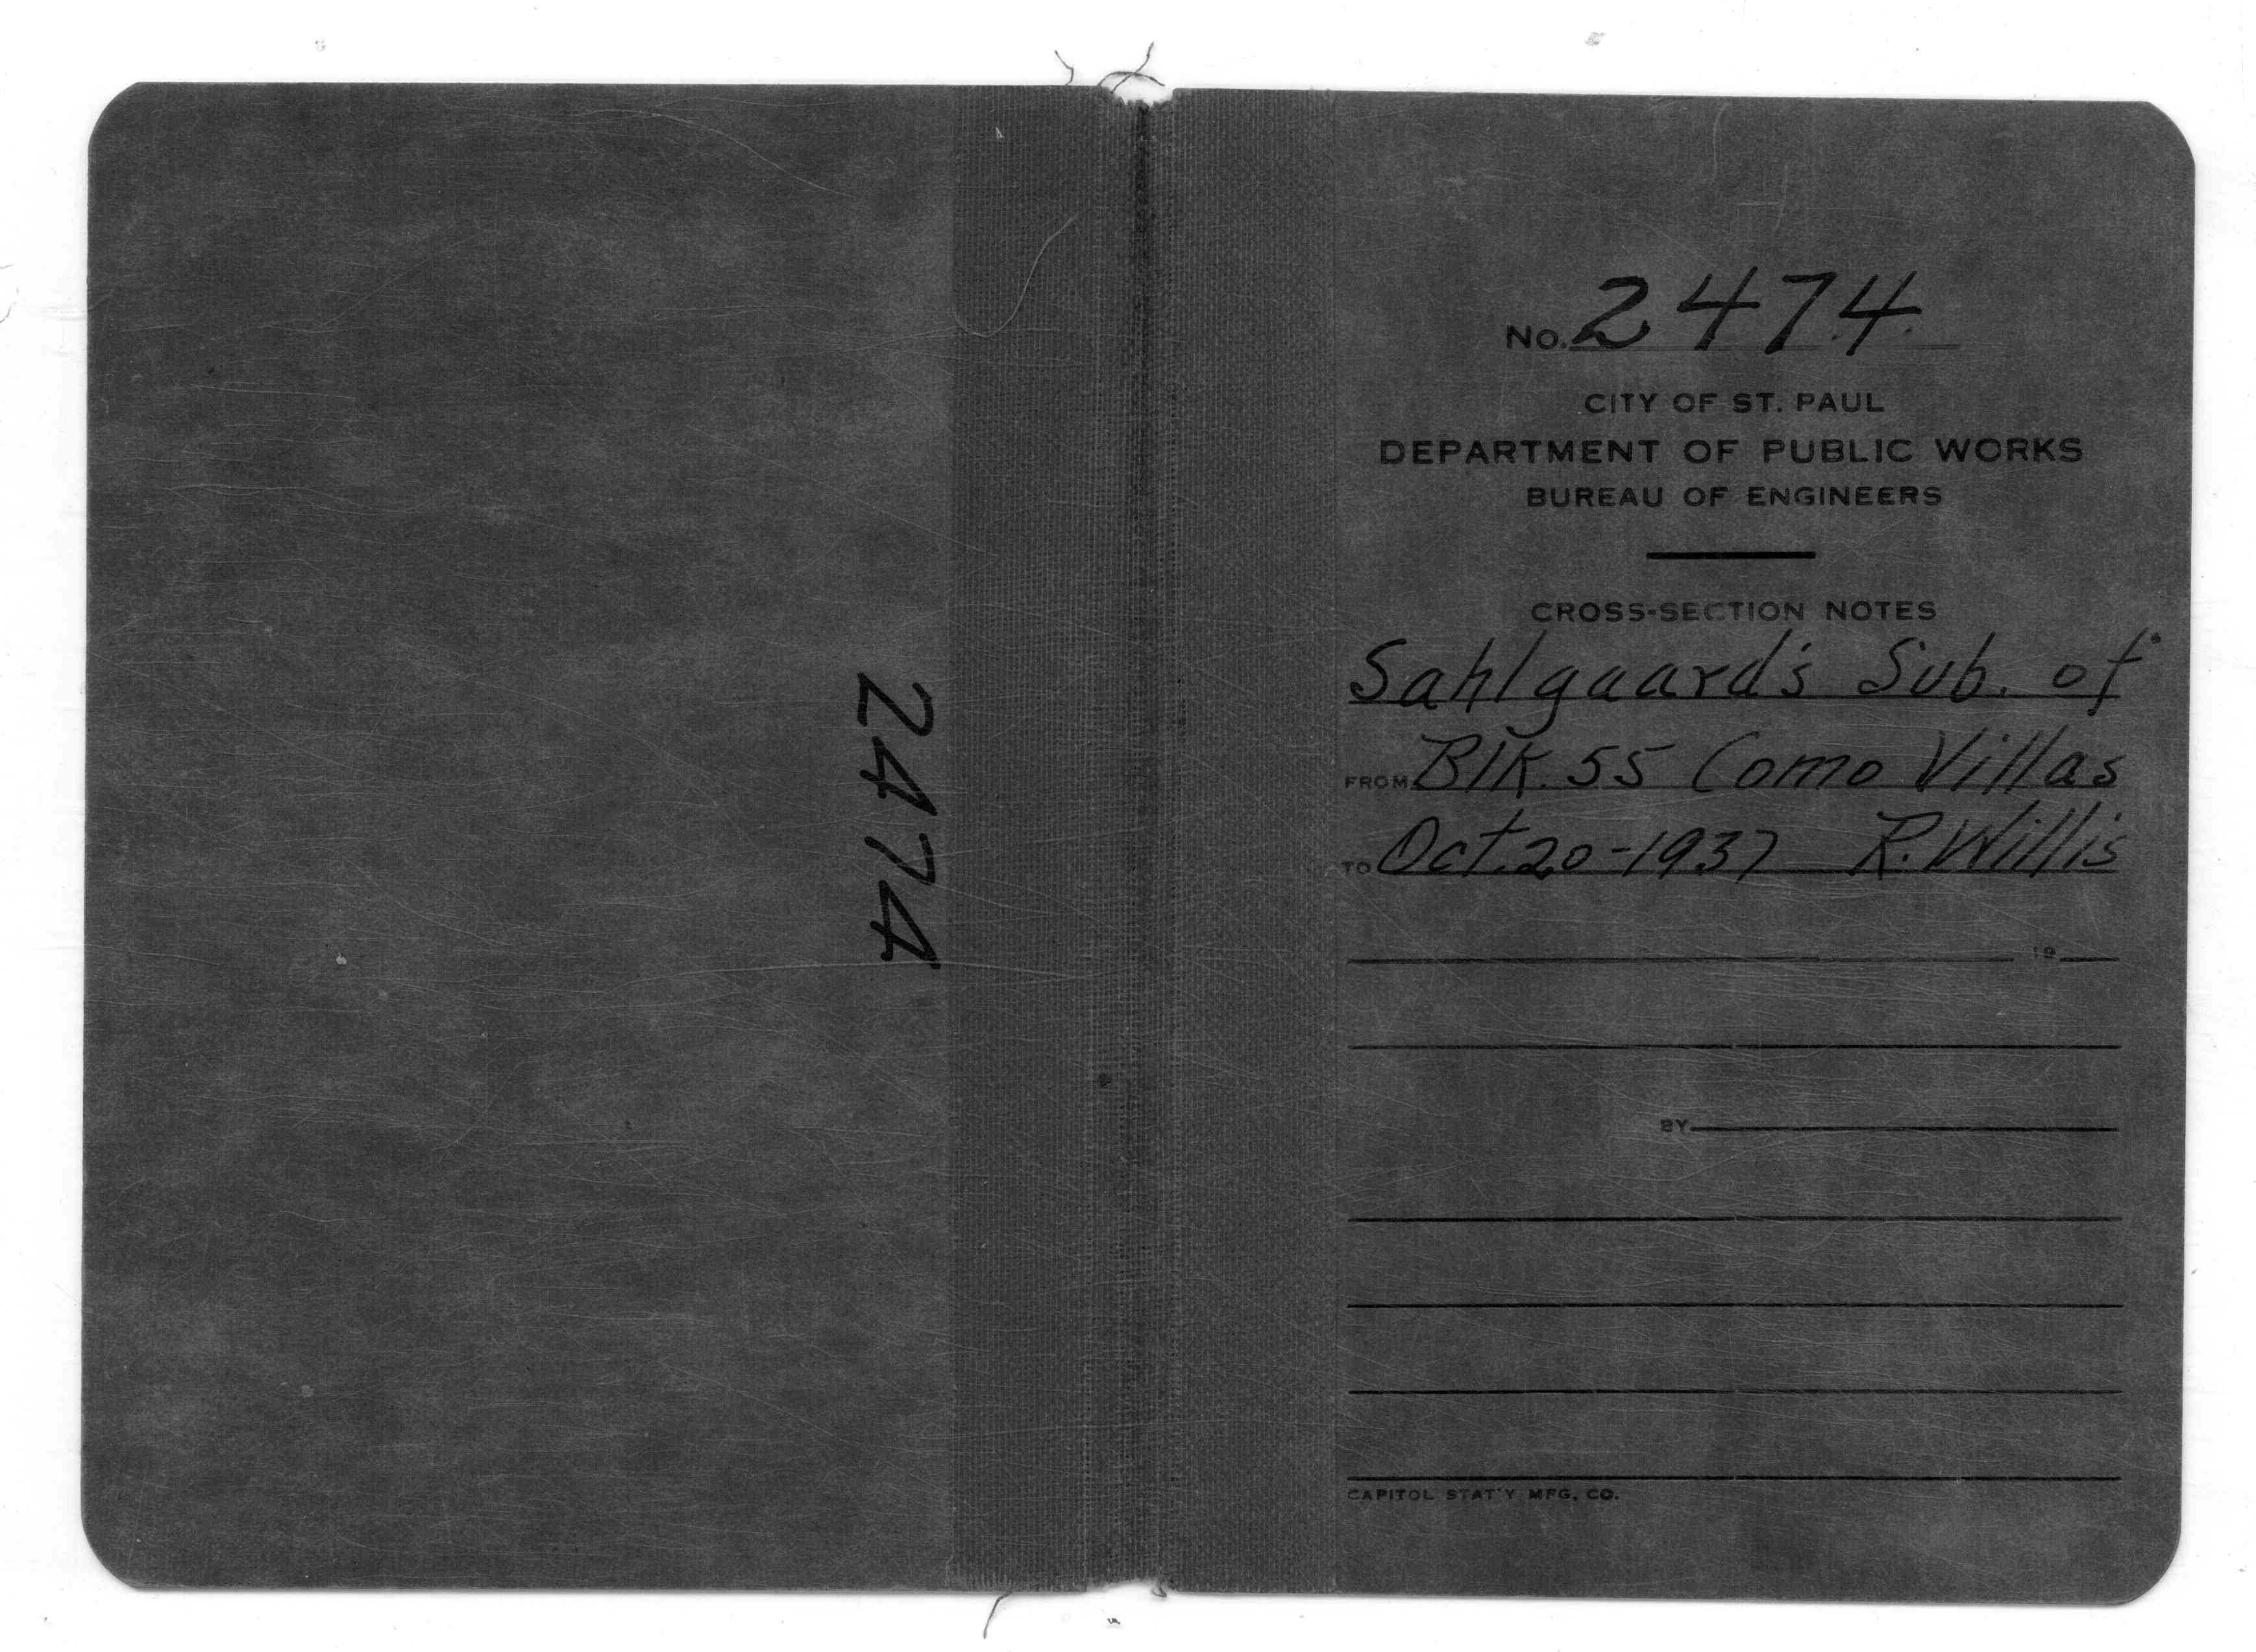 2474
No. 2474
CITY OF ST. PAUL
DEPARTMENT OF PUBLIC WORKS
BUREAU OF ENGINEERS
CROSS-SECTION NOTES
Sahlgaard's Sub. of
FROM Blk. 55 Como Villas
TO Oct. 20-1937 R. Willis
19
BY
CAPITOL STAT'Y MFG. CO.